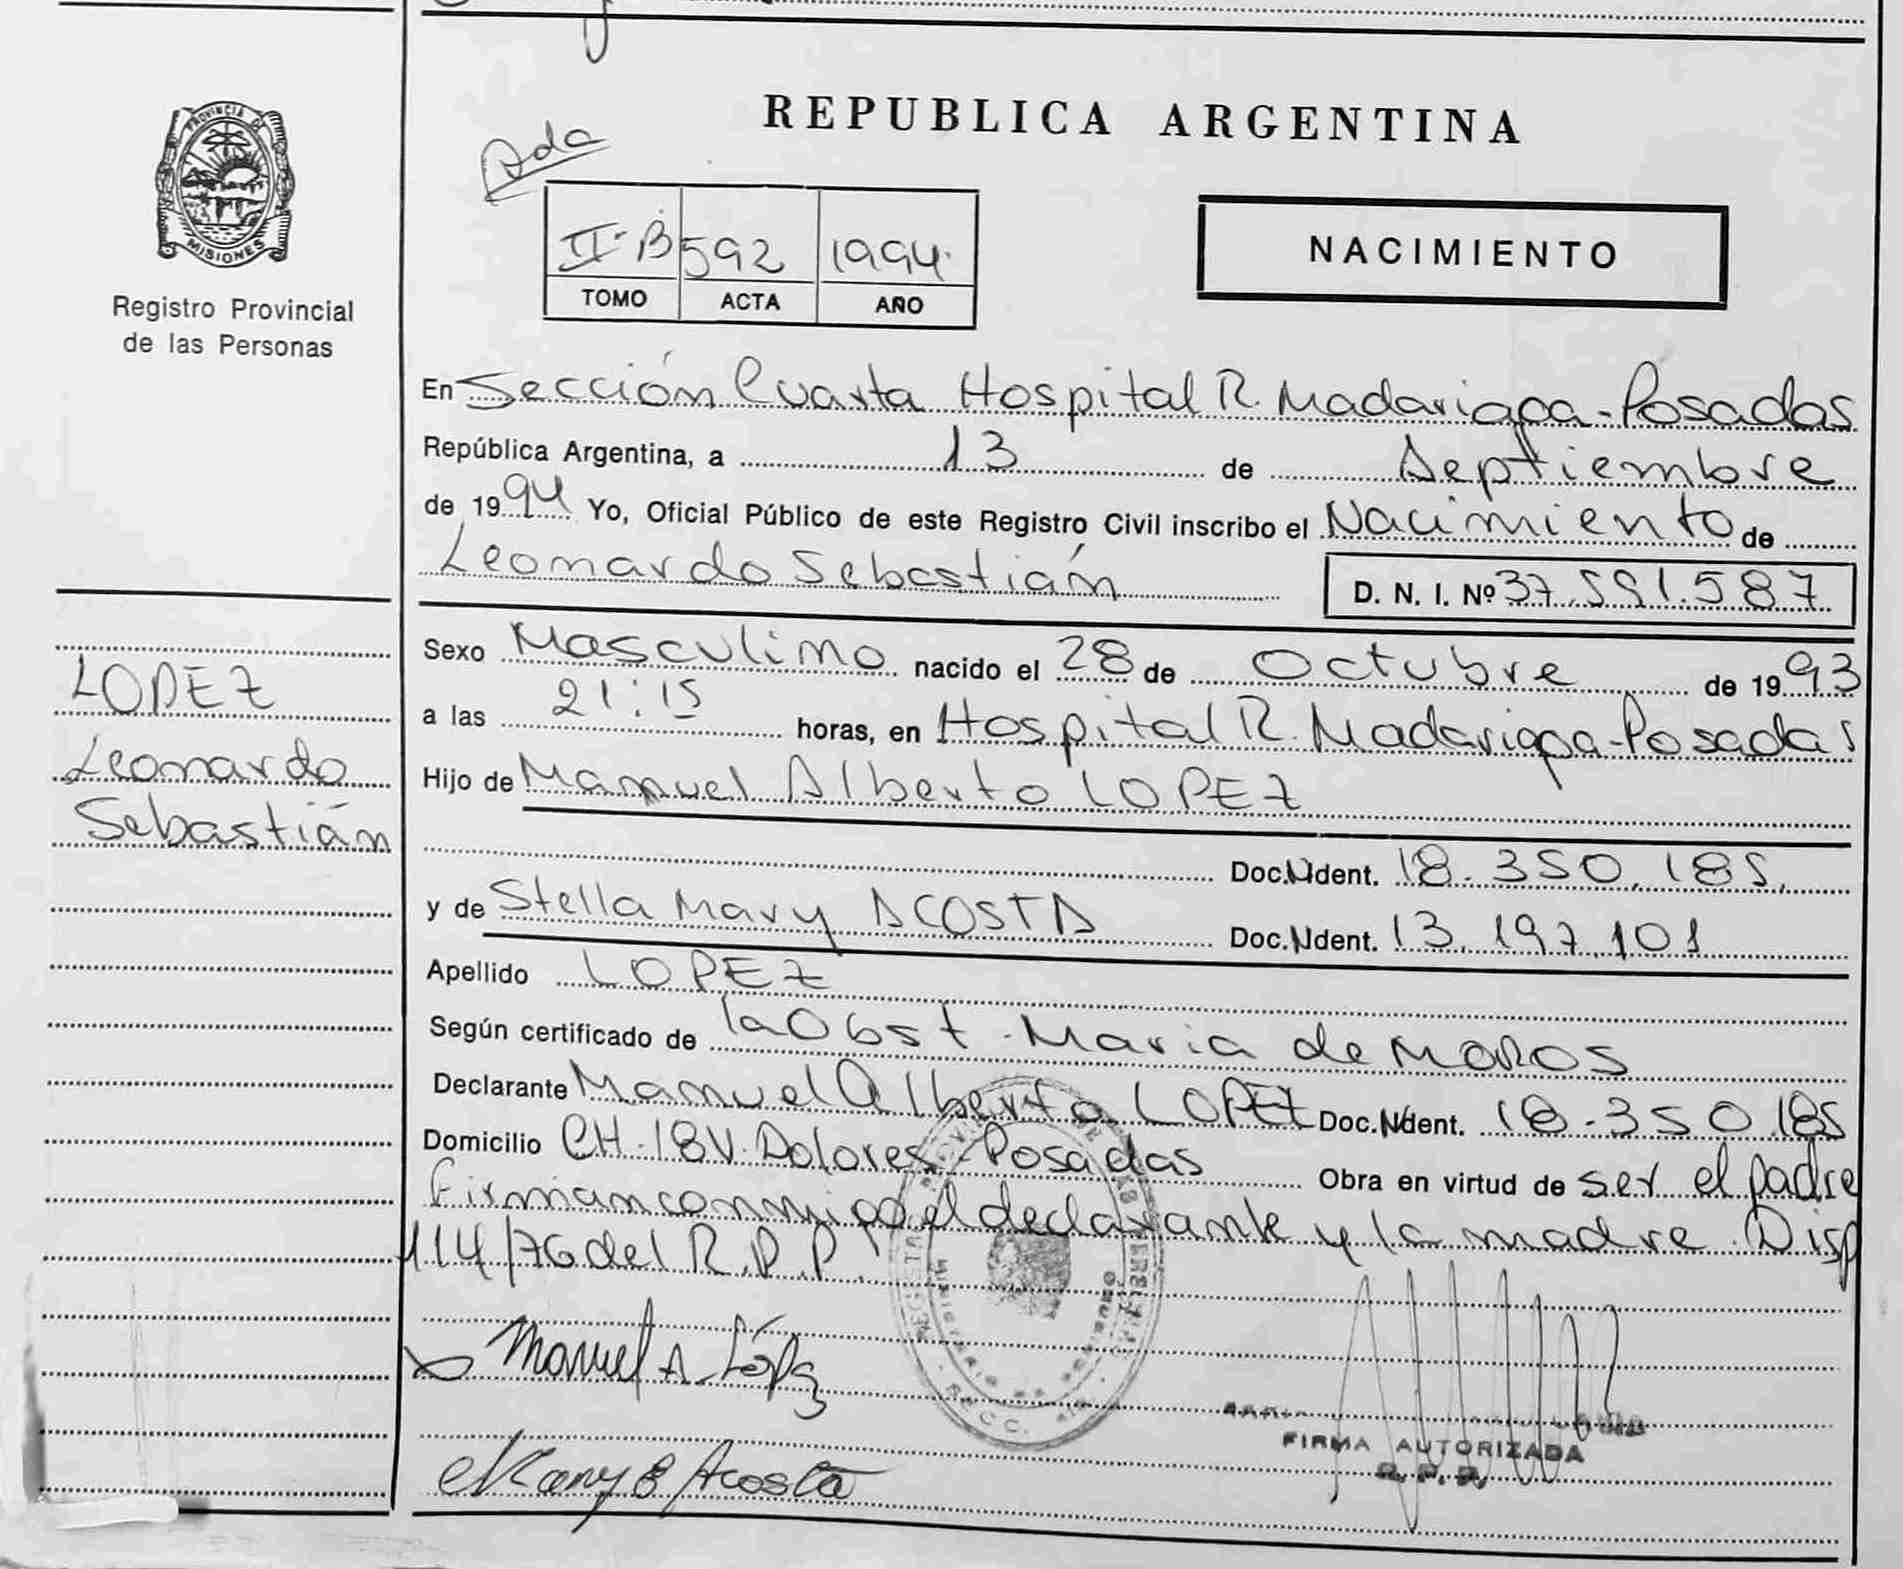 PROVINCIA D
MISIONES
Registro Provincial
de las Personas
LOPEZ
Leonardo
Sebastián
REPUBLICA ARGENTINA
II-B 592 1994.
TOMO ACTA AÑO
NACIMIENTO
En Sección Cuarta Hospital R. Madariaga-Posadas
República Argentina, a 13 de Septiembre
de 1994 Yo, Oficial Público de este Registro Civil inscribo el Nacimiento de
Leonardo Sebastián D. N. I. Nº 37.591.587
Sexo Masculino nacido el 28 de Octubre de 1993
a las 21:15 horas, en Hospital R. Madariaga-Posadas
Hijo de Manuel Alberto LOPEZ
Doc. Ident. 18.350.185.
y de Stella Mary ACOSTA Doc. Ident. 13.197.101
Apellido LOPEZ
Según certificado de la Obst. Maria de MOROS
Declarante Manuel Alberto LOPEZ Doc. Ident. 18.350.185
Domicilio CH-18 V. Dolores-Posadas Obra en virtud de ser el padre
Firman conmigo el declarante y la madre. Disp
114/76 del R.P.P.
Manuel A. López
FIRMA AUTORIZADA
R. P. P.
Mary E Acosta